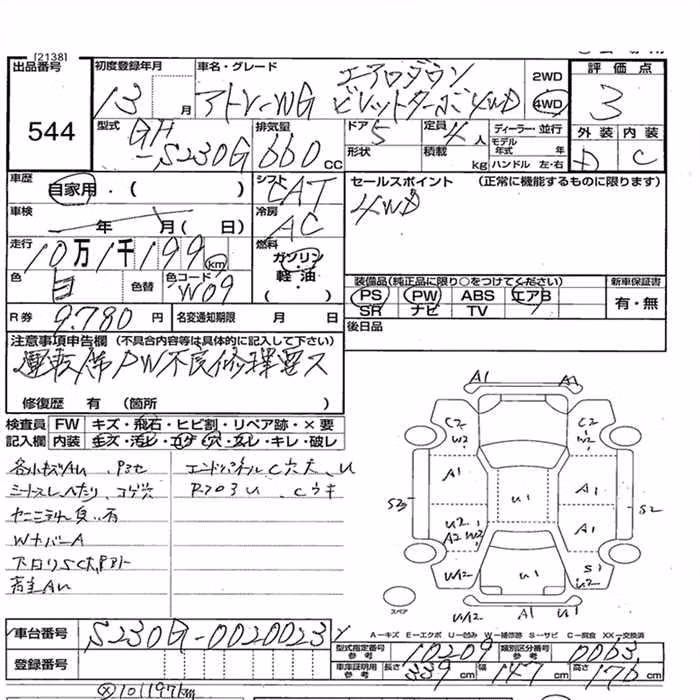 [2138]
出品番号 初度登録年月 車名・グレード エアロダウン 2WD 評価点
544 13 月 アトレーWG ビレットターボ4WD 4WD 3
型式 GH-S230G 排気量 660 cc ドア 5 定員 4 人 ディーラー・並行 外装 内装
形状 積載 kg モデル年式 年 ハンドル 左・右 D C
車歴 自家用・( ) シフト CAT セールスポイント (正常に機能するものに限ります)
車検 年 月( 日) 冷房 AC 4WD
走行 10万1千199 km 燃料 ガソリン 軽油 ( )
色 白 色替 色コード W09 装備品(純正品に限り○をつけてください) 新車保証書
PS PW ABS エアB 有・無
SR ナビ TV
R券 9.780 円 名変通知期限 月 日 後日品
注意事項申告欄 (不具合内容等は具体的に記入して下さい)
運転席PW不良修理要ス
修復歴 有 (箇所 )
検査員 FW キズ・飛石・ヒビ割・リペア跡・×要
記入欄 内装 キズ・汚レ・コゲ・穴・スレ・キレ・破レ
A1 A1
C2 W2 C2 W2
各小キズAU エンドパネルC穴大、U
シートスレ へたり、コゲ穴 Rフロア U、Cウキ
A1 U1 A1
S3 S2
U2 A2 W2 A1
WナンバーA
下回りSC大
W2 U1 S1 U2
スペア
W2 A1 U1
車台番号 S230G-0020023
A−キズ E−エクボ U−凹み W−補修跡 S−サビ C−腐食 XX−交換済
登録番号 型式指定番号 参考 10209 類別区分番号 参考 0063
車庫証明用 参考 長さ 339 cm 幅 147 cm 高さ 176 cm
ⓧ101197km